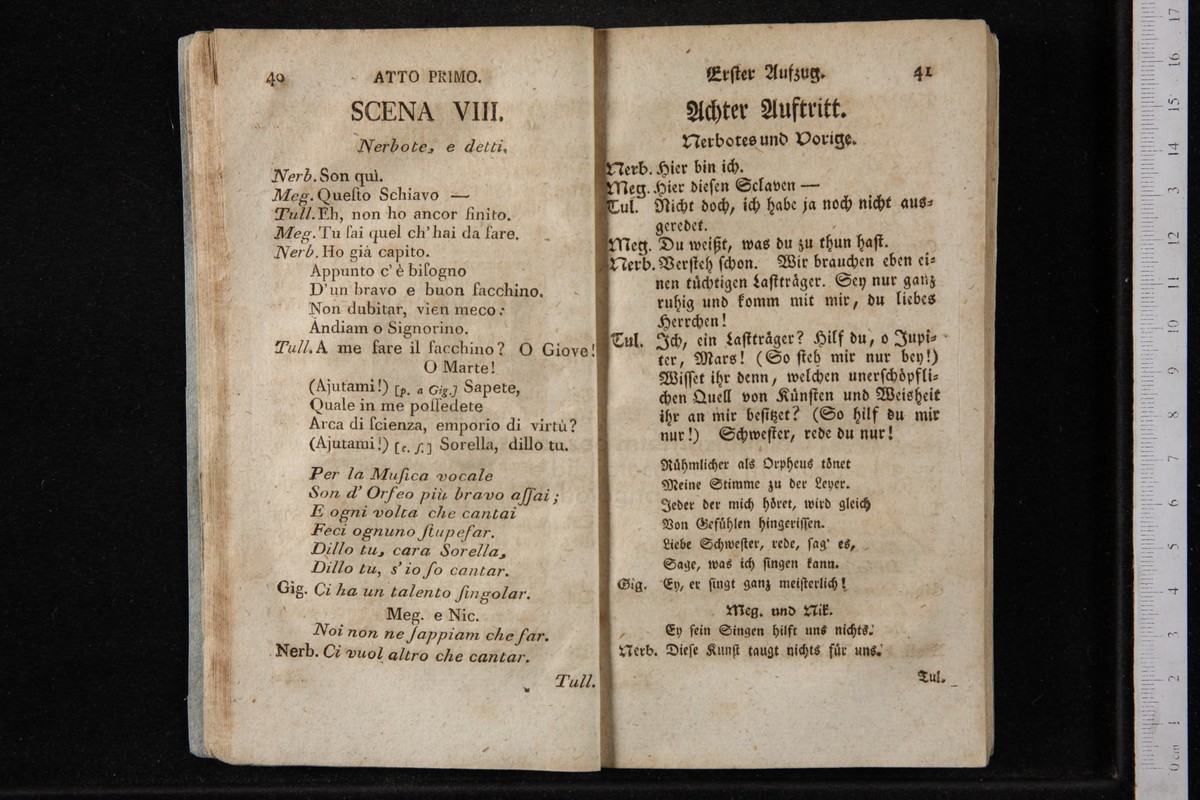 40 ATTO PRIMO.
SCENA VIII.
Nerbote, e detti.
Nerb. Son quì.
Meg. Queſto Schiavo —
Tull. Eh, non ho ancor finito.
Meg. Tu ſai quel ch'hai da fare.
Nerb. Ho già capito.
Appunto c'è biſogno
D'un bravo e buon facchino.
Non dubitar, vien meco:
Andiam o Signorino.
Tull. A me fare il facchino? O Giove!
O Marte!
(Ajutami!) [p. a Gig.] Sapete,
Quale in me poſſedete
Arca di ſcienza, emporio di virtù?
(Ajutami!) [c. ſ.] Sorella, dillo tu.
Per la Muſica vocale
Son d'Orfeo più bravo aſſai;
E ogni volta che cantai
Feci ognuno ſtupefar.
Dillo tu, cara Sorella,
Dillo tu, s'io ſo cantar.
Gig. Ci ha un talento ſingolar.
Meg. e Nic.
Noi non ne ſappiam che far.
Nerb. Ci vuol altro che cantar.
Tull.
Erſter Aufzug. 41
Achter Auftritt.
Nerbotes und Vorige.
Nerb. Hier bin ich.
Meg. Hier dieſen Sclaven —
Tul. Nicht doch, ich habe ja noch nicht aus-
geredet.
Meg. Du weißt, was du zu thun haſt.
Nerb. Verſteh ſchon. Wir brauchen eben ei-
nen tüchtigen Laſtträger. Sey nur ganz
ruhig und komm mit mir, du liebes
Herrchen!
Tul. Ich, ein Laſtträger? Hilf du, o Jupi-
ter, Mars! (So ſteh mir nur bey!)
Wiſſet ihr denn, welchen unerſchöpfli-
chen Quell von Künſten und Weisheit
ihr an mir beſitzet? (So hilf du mir
nur!) Schweſter, rede du nur!
Rühmlicher als Orpheus tönet
Meine Stimme zu der Leyer.
Jeder der mich höret, wird gleich
Von Gefühlen hingeriſſen.
Liebe Schweſter, rede, ſag' es,
Sage, was ich ſingen kann.
Gig. Ey, er ſingt ganz meiſterlich!
Meg. und Nik.
Ey ſein Singen hilft uns nichts.
Nerb. Dieſe Kunſt taugt nichts für uns.
Tul.
0 cm 1 2 3 4 5 6 7 8 9 10 11 12 13 14 15 16 17